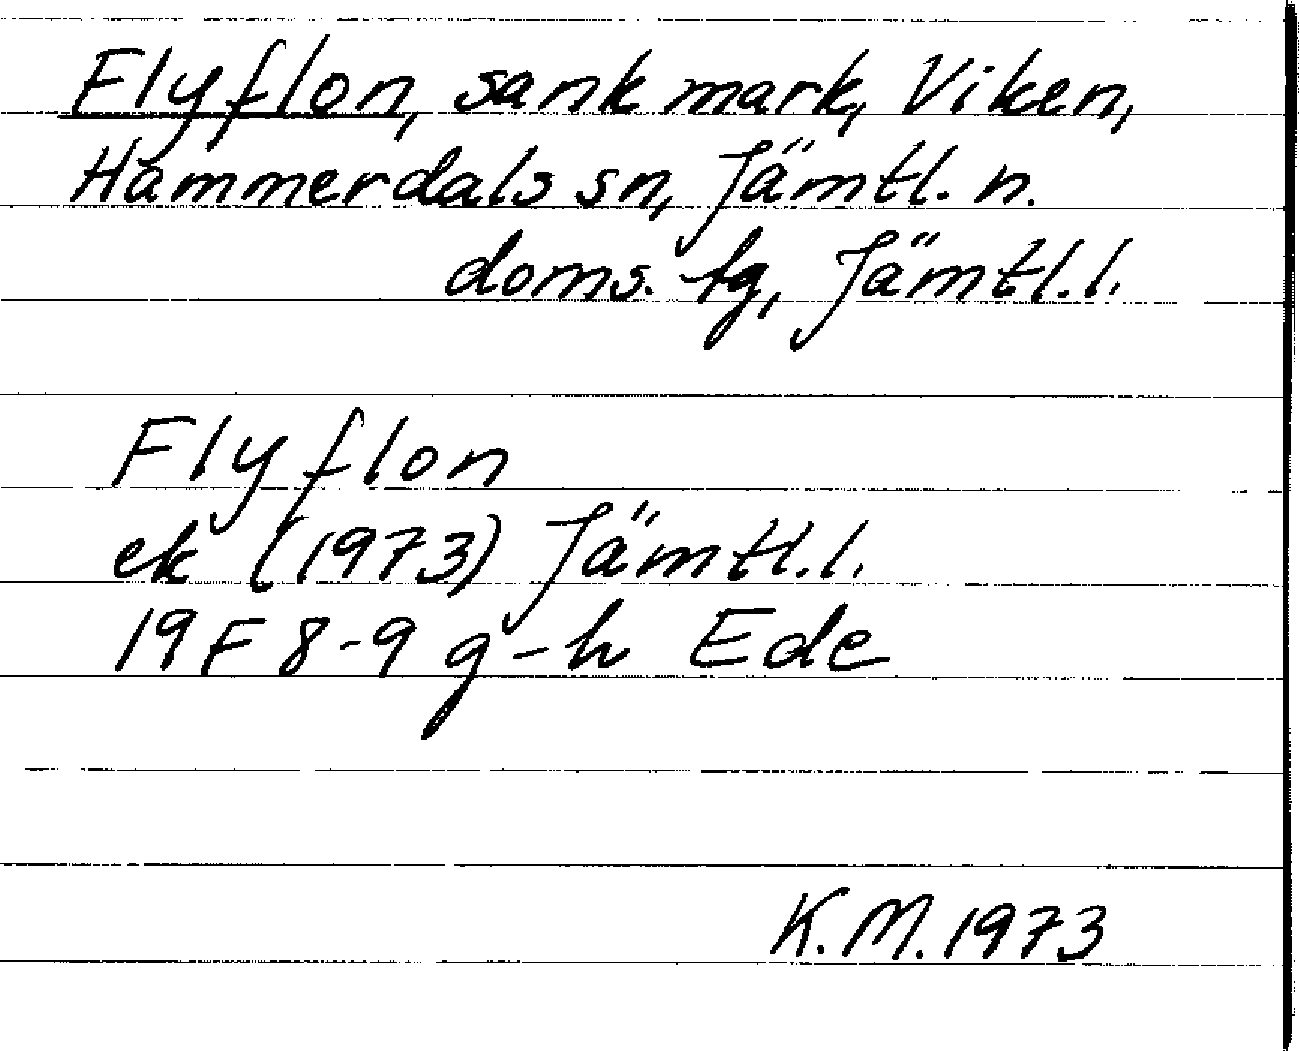 Flyflon, sank mark, Viken,
Hammerdals sn, Jämtl. n.
doms. tg, Jämtl. l.
Flyflon
ek (1973) Jämtl. l.
19F 8-9 g-h Ede
K.M. 1973